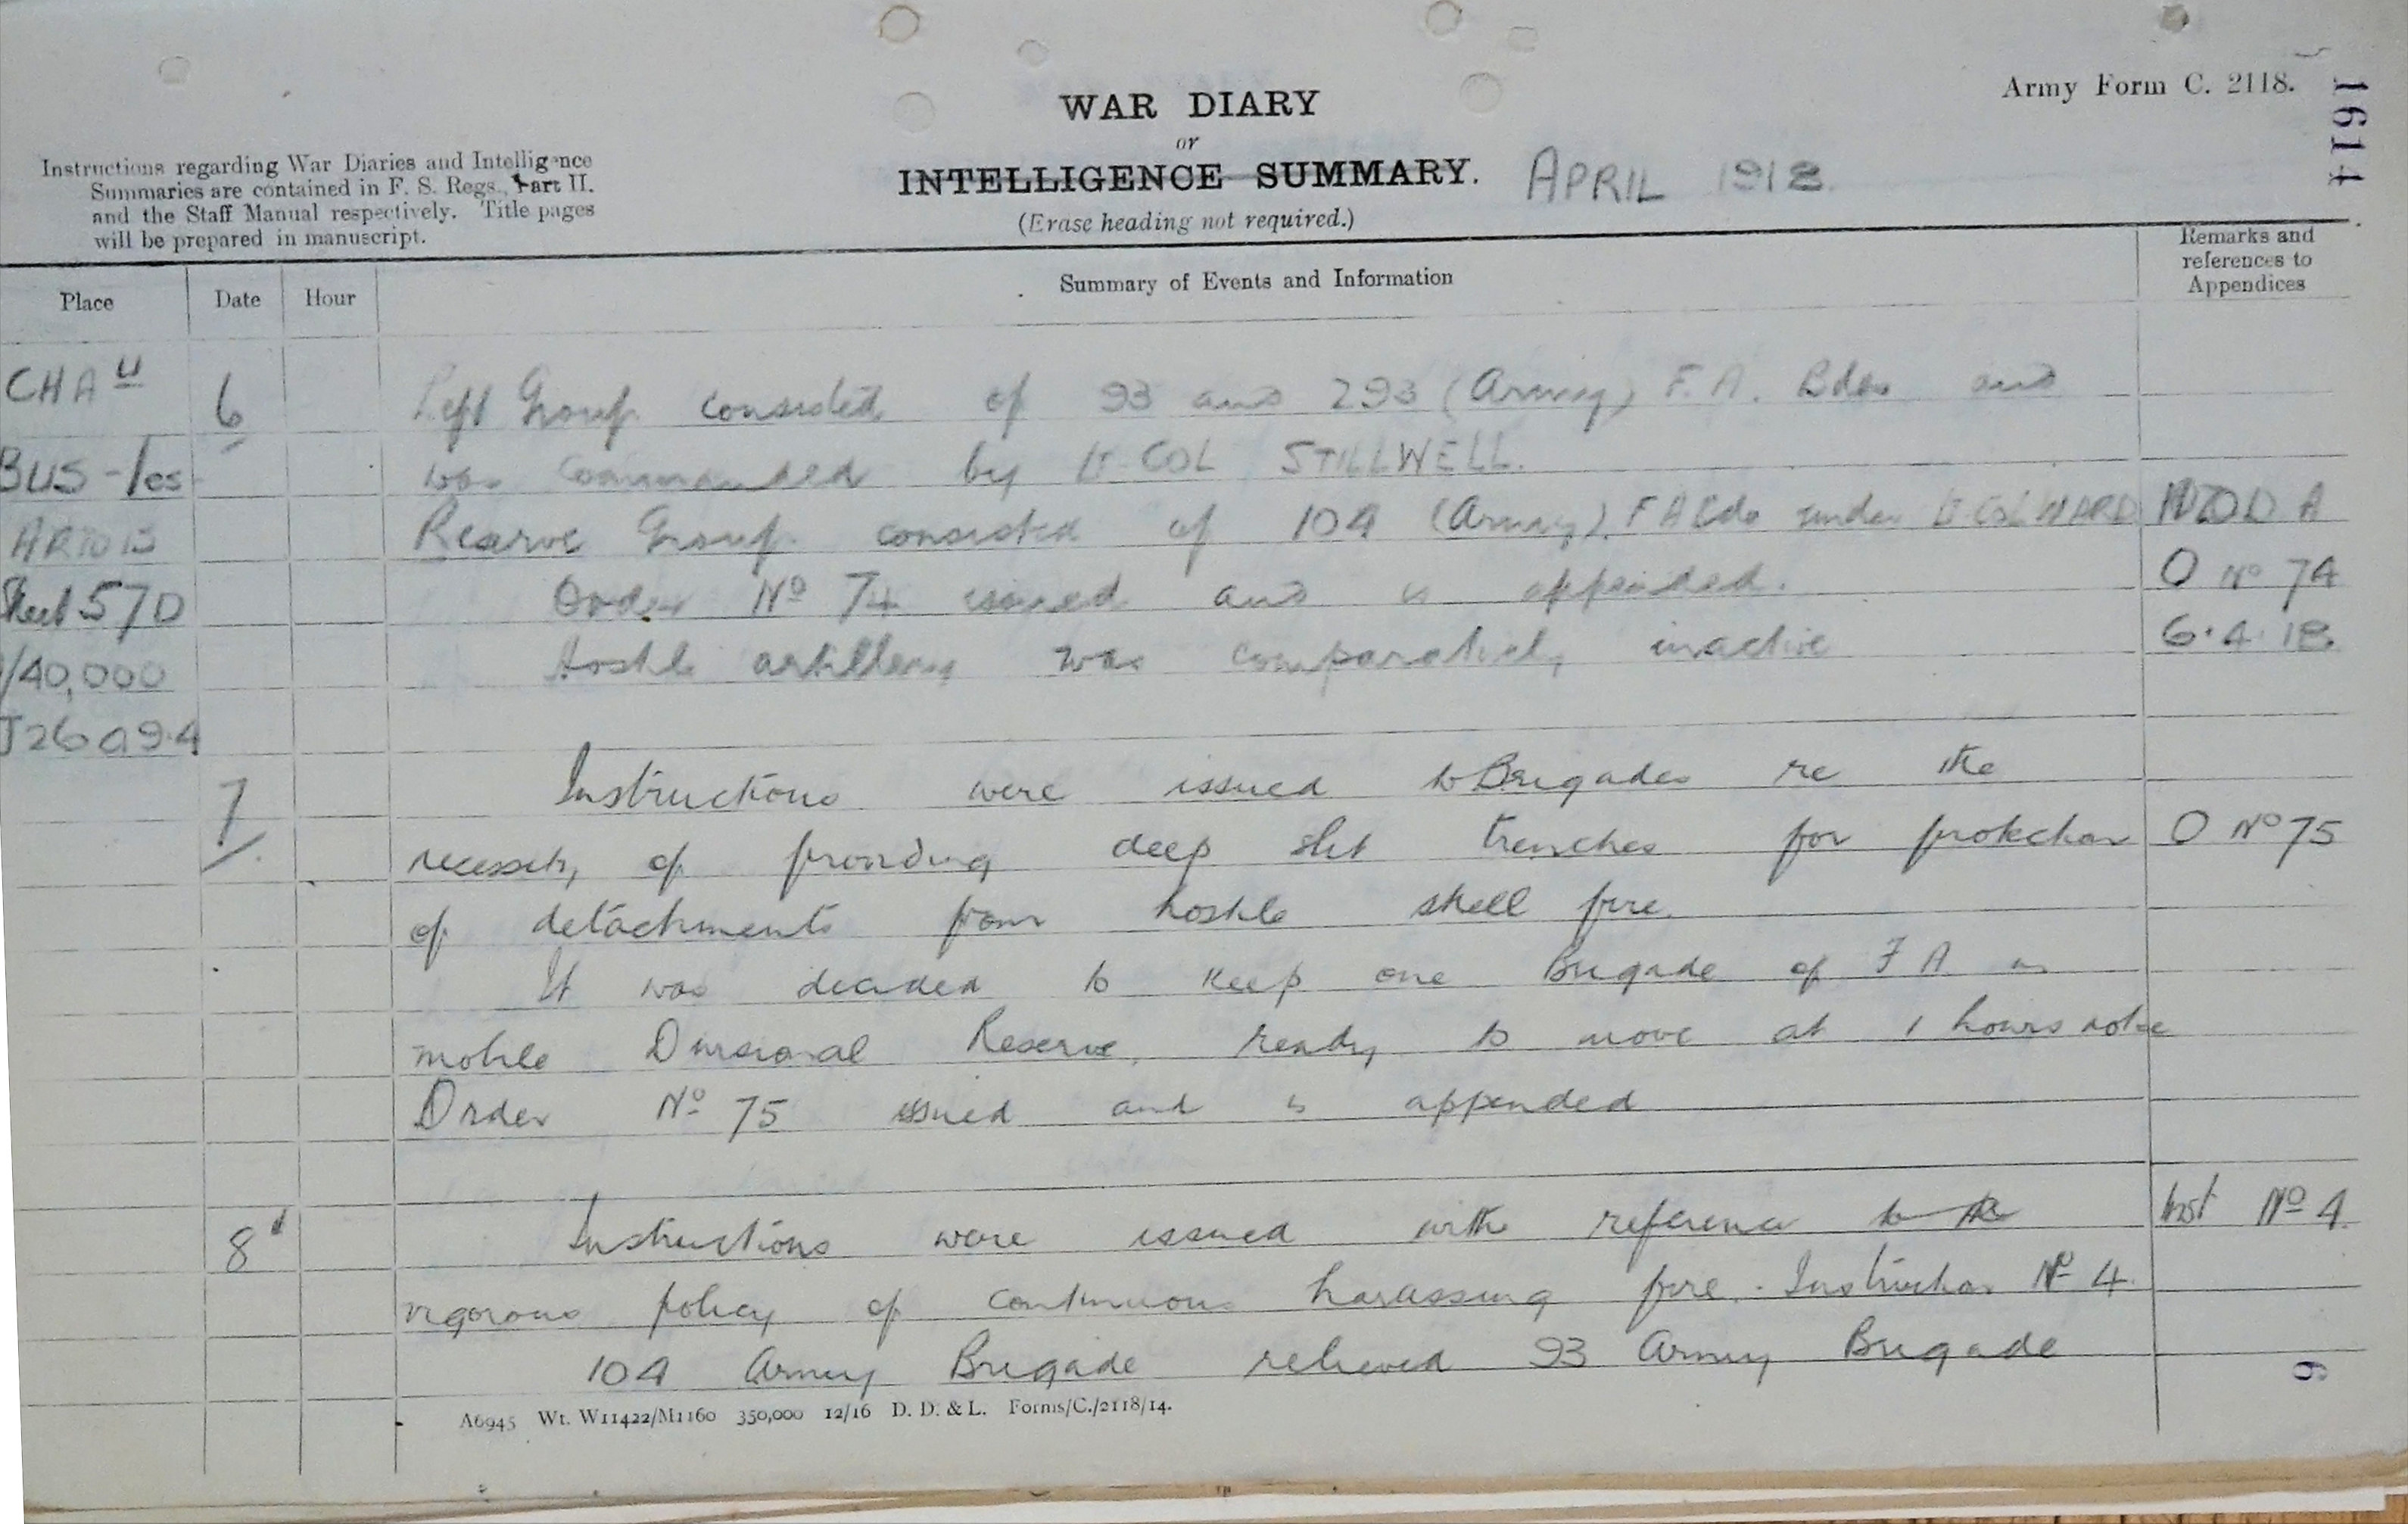 Army Form C. 2118.
1614
WAR DIARY
or
INTELLIGENCE SUMMARY.
APRIL 1918.
(Erase heading not required.)
Instructions regarding War Diaries and Intelligence
Summaries are contained in F. S. Regs., Part II.
and the Staff Manual respectively. Title pages
will be prepared in manuscript.
Place Date Hour Summary of Events and Information Remarks and references to Appendices
CHAU 6 Left Group consisted of 93 and 293 (Army) F.A. Bdes and
BUS-les was commanded by Lt-COL STILLWELL.
ARTOIS Reserve Group consisted of 104 (Army) F A Bde under Lt COL WARD D A
Sheet 57D Order No 74 issued and is appended. O No 74
1/40,000 Hostile artillery was comparatively inactive 6.4.18.
J26a9.4
7 Instructions were issued to Brigades re the
necessity of providing deep slit trenches for protection O No 75
of detachments from hostile shell fire.
It was decided to keep one Brigade of F A in
mobile Divisional Reserve, ready to move at 1 hours notice
Order No 75 issued and is appended
8 Instructions were issued with reference to the Inst No 4.
vigorous policy of continuous harassing fire. Instruction No 4.
104 Army Brigade relieved 93 Army Brigade
6
A6945 Wt. W11422/M1160 350,000 12/16 D. D. & L. Forms/C./2118/14.